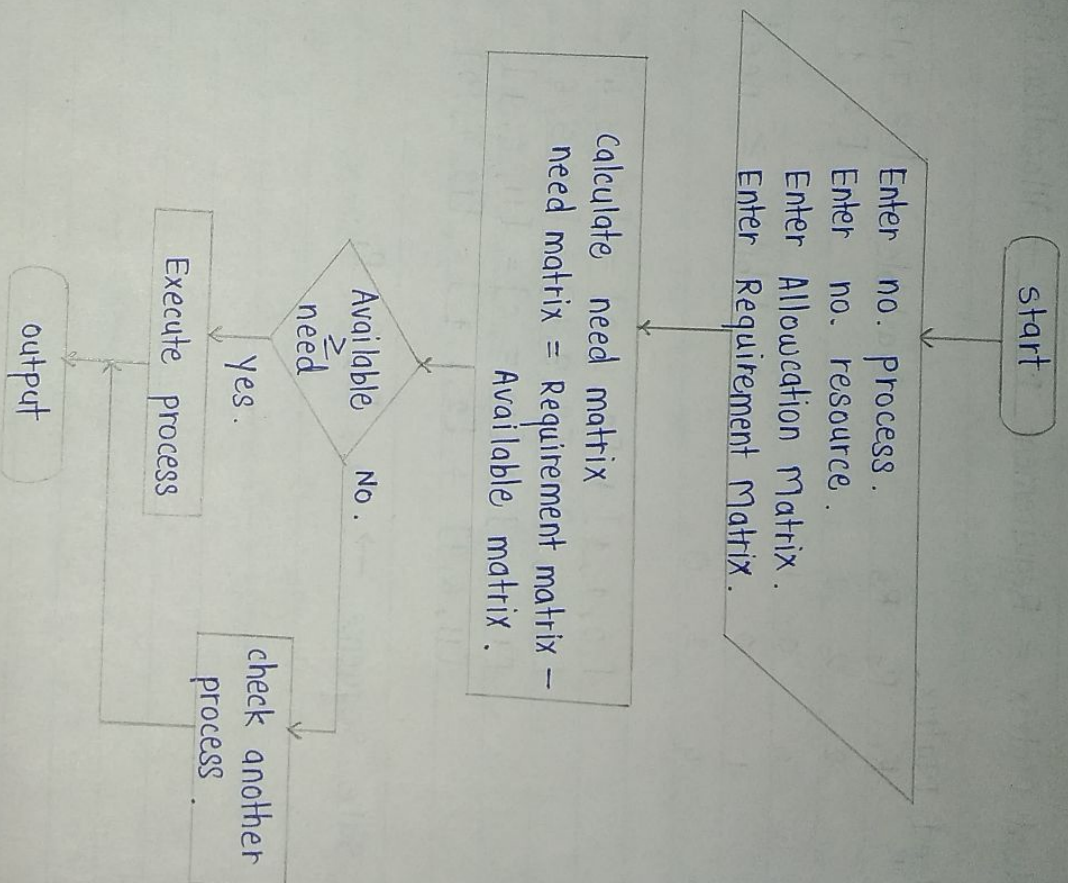 start
Enter no. process.
Enter no. resource.
Enter Allowcation Matrix.
Enter Requirement Matrix.
Calculate need matrix
need matrix = Requirement matrix –
Available matrix.
Available
≥
need
No.
Yes.
Execute process
check another
process.
output